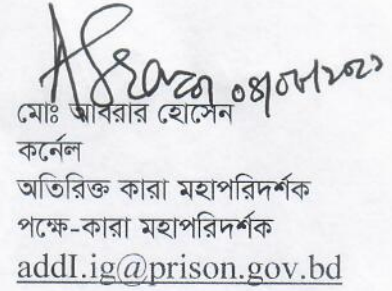 মোঃ আবরার হোসেন
কর্নেল
অতিরিক্ত কারা মহাপরিদর্শক
পক্ষে-কারা মহাপরিদর্শক
addI.ig@prison.gov.bd